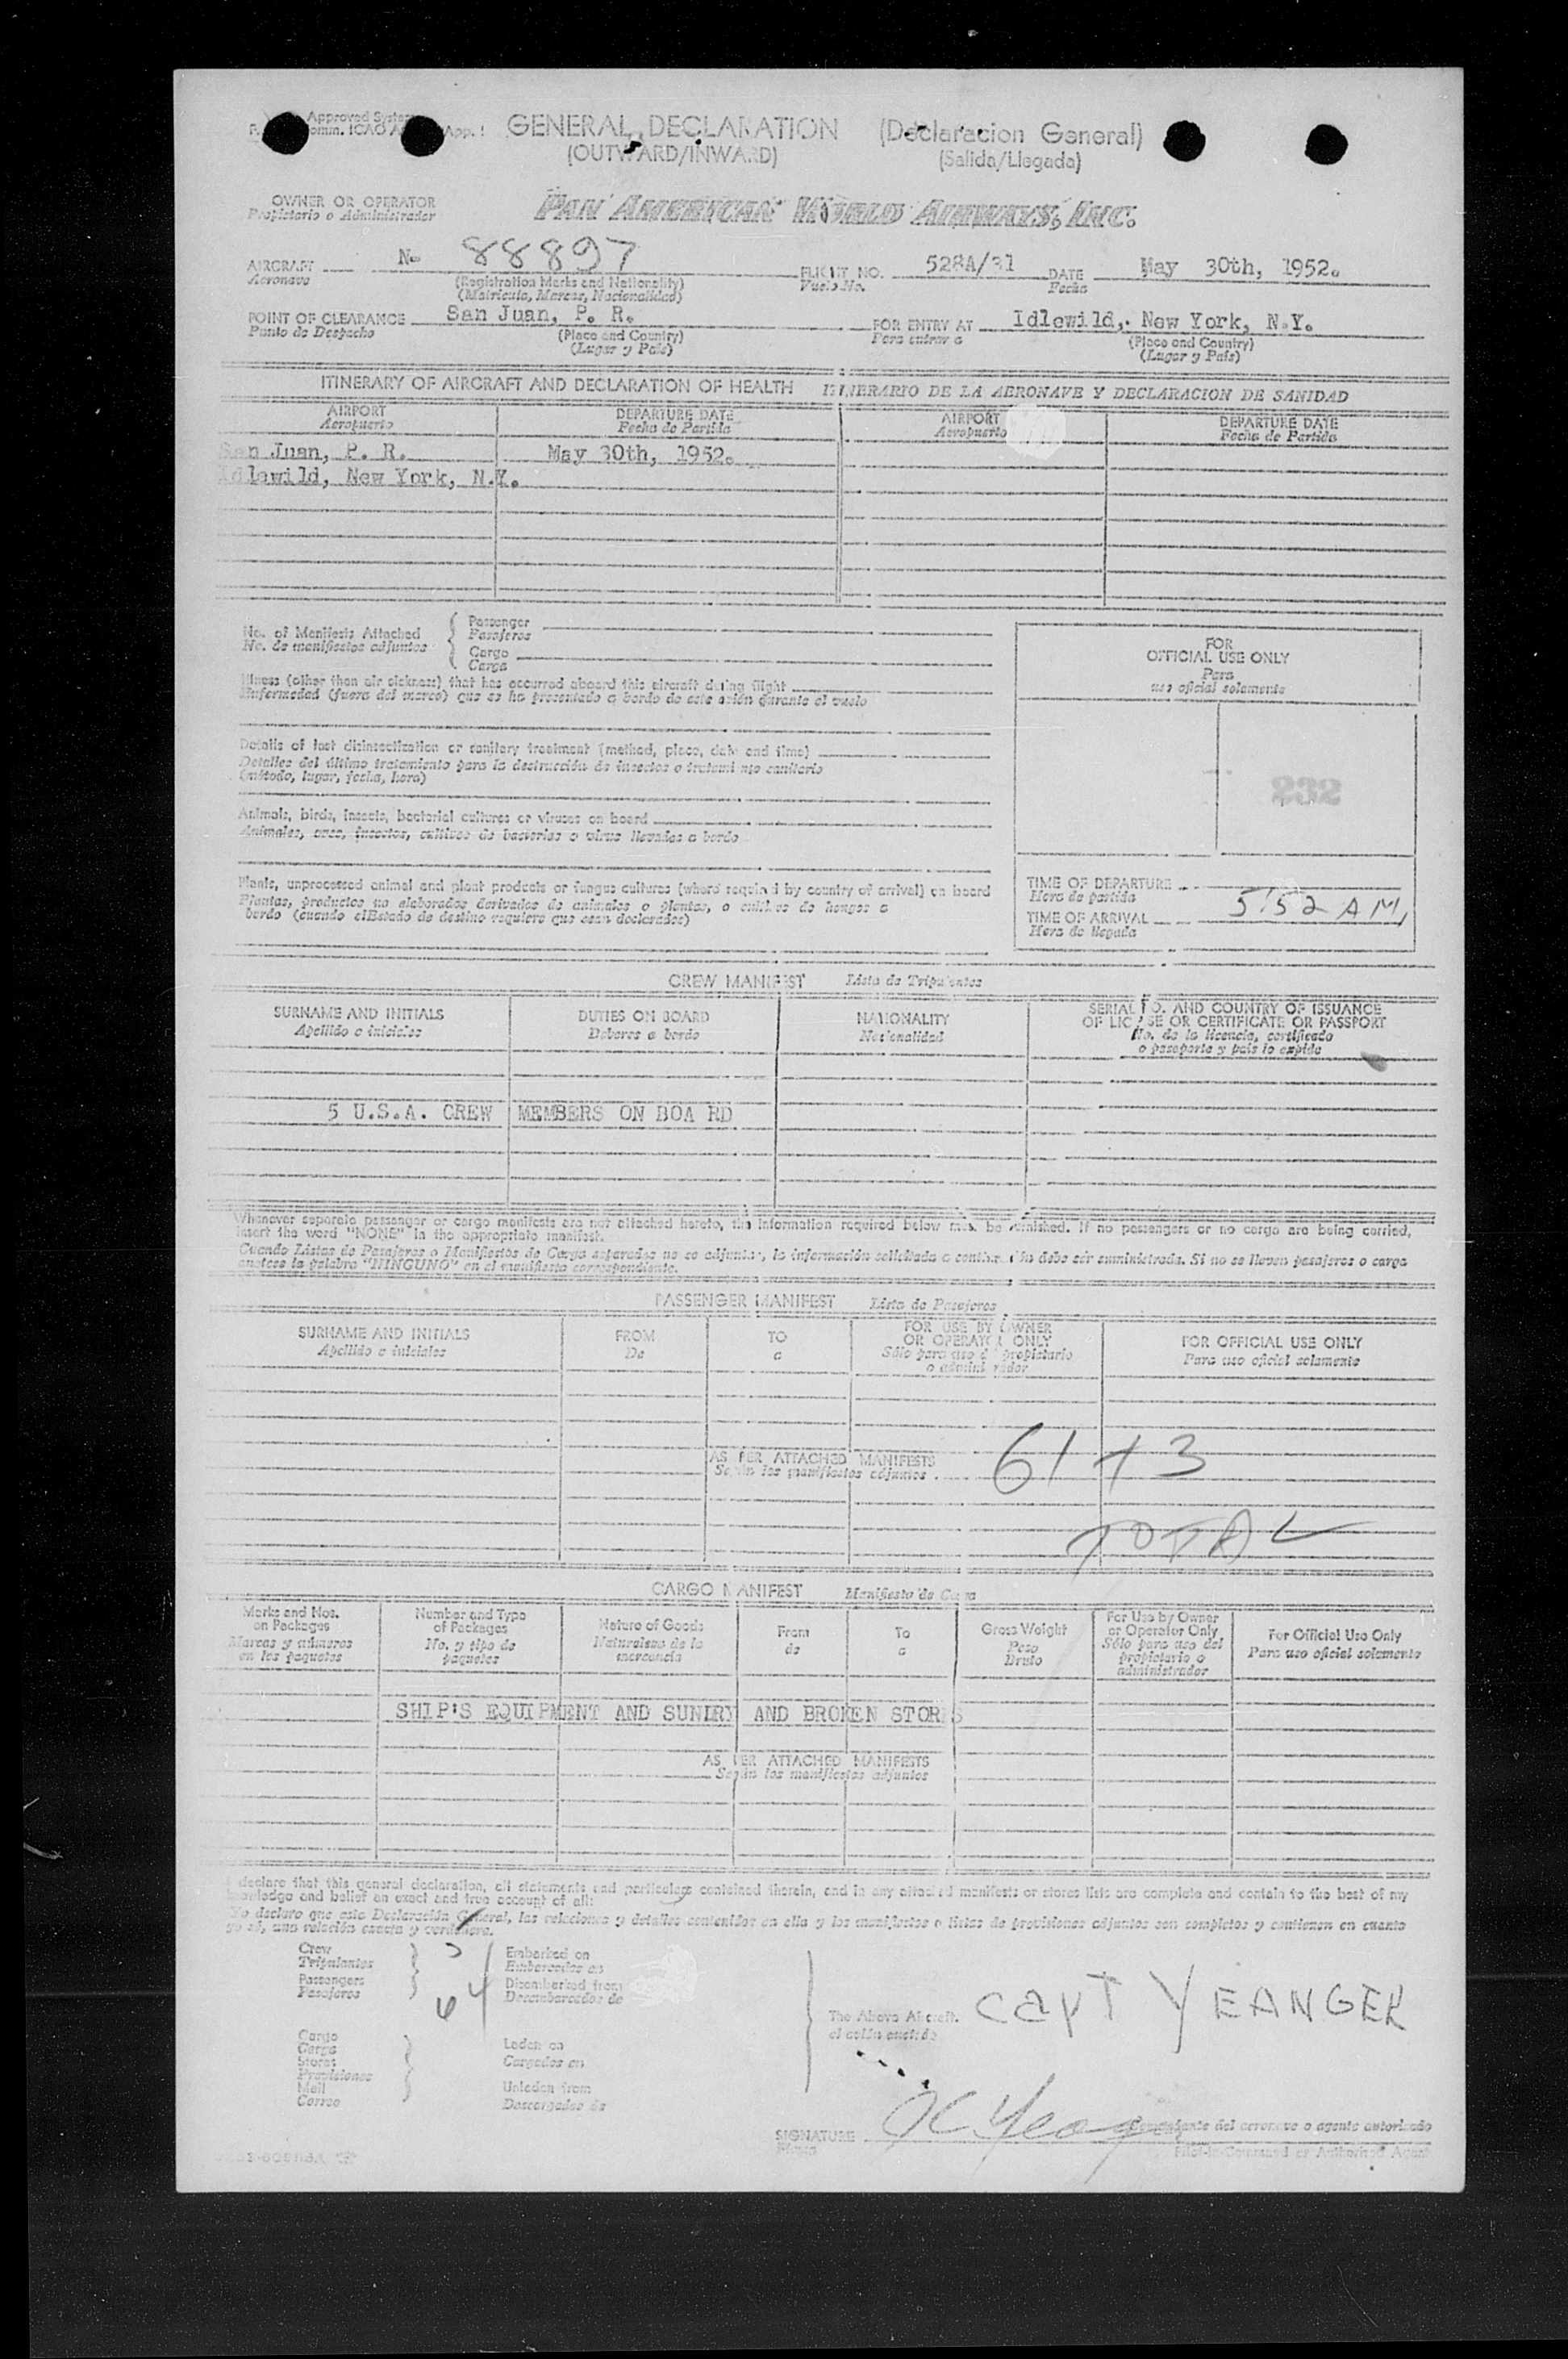 Approved System
GENERAL DECLARATION (Declaracion General)
(OUTWARD/INWARD) (Salida/Llegada)
OWNER OR OPERATOR
Propietario o Administrador
PAN AMERICAN WORLD AIRWAYS, INC.
AIRCRAFT N- 88897 FLIGHT NO. 528A/31 DATE May 30th, 1952.
Aeronave (Registration Marks and Nationality) Vuelo No. Fecha
(Matricula, Marcas, Nacionalidad)
POINT OF CLEARANCE San Juan, P. R. FOR ENTRY AT Idlewild, New York, N.Y.
Punto de Despacho (Place and Country) Para entrar a (Place and Country)
(Lugar y País) (Lugar y País)
ITINERARY OF AIRCRAFT AND DECLARATION OF HEALTH ITINERARIO DE LA AERONAVE Y DECLARACION DE SANIDAD
AIRPORT DEPARTURE DATE AIRPORT DEPARTURE DATE
Aeropuerto Fecha de Partida Aeropuerto Fecha de Partida
San Juan, P. R. May 30th, 1952.
Idlewild, New York, N.Y.
No. of Manifests Attached Passenger
No. de manifiestos adjuntos Pasajeros
Cargo
Carga
FOR
OFFICIAL USE ONLY
Para
uso oficial solamente
Illness (other than air sickness) that has occurred aboard this aircraft during flight
Enfermedad (fuera del mareo) que se ha presentado a bordo de este avión durante el vuelo
Details of last disinsectisation or sanitary treatment (method, place, date and time)
Detalles del último tratamiento para la destrucción de insectos o tratamiento sanitario
(método, lugar, fecha, hora)
Animals, birds, insects, bacterial cultures or viruses on board
Animales, aves, insectos, cultivos de bacterias o virus llevados a bordo
Plants, unprocessed animal and plant products or fungus cultures (where required by country of arrival) on board
Plantas, productos no elaborados derivados de animales o plantas, o cultivos de hongos a
bordo (cuando el Estado de destino requiere que sean declarados)
TIME OF DEPARTURE
Hora de partida
TIME OF ARRIVAL 5:52 AM
Hora de llegada
CREW MANIFEST Lista de Tripulantes
SURNAME AND INITIALS DUTIES ON BOARD NATIONALITY SERIAL NO. AND COUNTRY OF ISSUANCE
Apellido e iniciales Deberes a bordo Nacionalidad OF LICENSE OR CERTIFICATE OR PASSPORT
No. de la licencia, certificado
o pasaporte y país lo expide
5 U.S.A. CREW MEMBERS ON BOA RD
Whenever separate passenger or cargo manifests are not attached hereto, the information required below must be furnished. If no passengers or no cargo are being carried,
insert the word "NONE" in the appropriate manifest.
Cuando Listas de Pasajeros o Manifiestos de Carga separados no se adjuntan, la información solicitada a continuación debe ser suministrada. Si no se llevan pasajeros o carga
anótese la palabra "NINGUNO" en el manifiesto correspondiente.
PASSENGER MANIFEST Lista de Pasajeros
SURNAME AND INITIALS FROM TO FOR USE BY OWNER FOR OFFICIAL USE ONLY
Apellido e iniciales De a OR OPERATOR ONLY Para uso oficial solamente
Sólo para uso del propietario
o administrador
AS PER ATTACHED MANIFESTS 61 + 3
Según los manifiestos adjuntos
TOTAL
CARGO MANIFEST Manifiesto de Carga
Marks and Nos. Number and Type Nature of Goods From To Gross Weight For Use by Owner For Official Use Only
on Packages of Packages Naturaleza de la de a Peso or Operator Only Para uso oficial solamente
Marcas y números No. y tipo de mercancía Bruto Sólo para uso del
en los paquetes paquetes propietario o
administrador
SHIP'S EQUIPMENT AND SUNDRY AND BROKEN STORES
AS PER ATTACHED MANIFESTS
Según los manifiestos adjuntos
I declare that this general declaration, all statements and particulars contained therein, and in any attached manifests or stores lists are complete and contain to the best of my
knowledge and belief an exact and true account of all:
Yo declaro que esta Declaración General, las relaciones y detalles contenidos en ella y los manifiestos o listas de provisiones adjuntos son completos y contienen en cuanto
yo sé, una relación exacta y verdadera.
Crew 5 Embarked on
Tripulantes Embarcados en
Passengers 64 Disembarked from
Pasajeros Desembarcados de
The Above Aircraft. CAPT YEANGER
el avión
Cargo Laden on
Carga Cargados en
Stores
Provisiones
Mail Unladen from
Correo Descargados de
SIGNATURE
Comandante del aeronave o agente autorizado
Pilot-in-Command or Authorized Agent